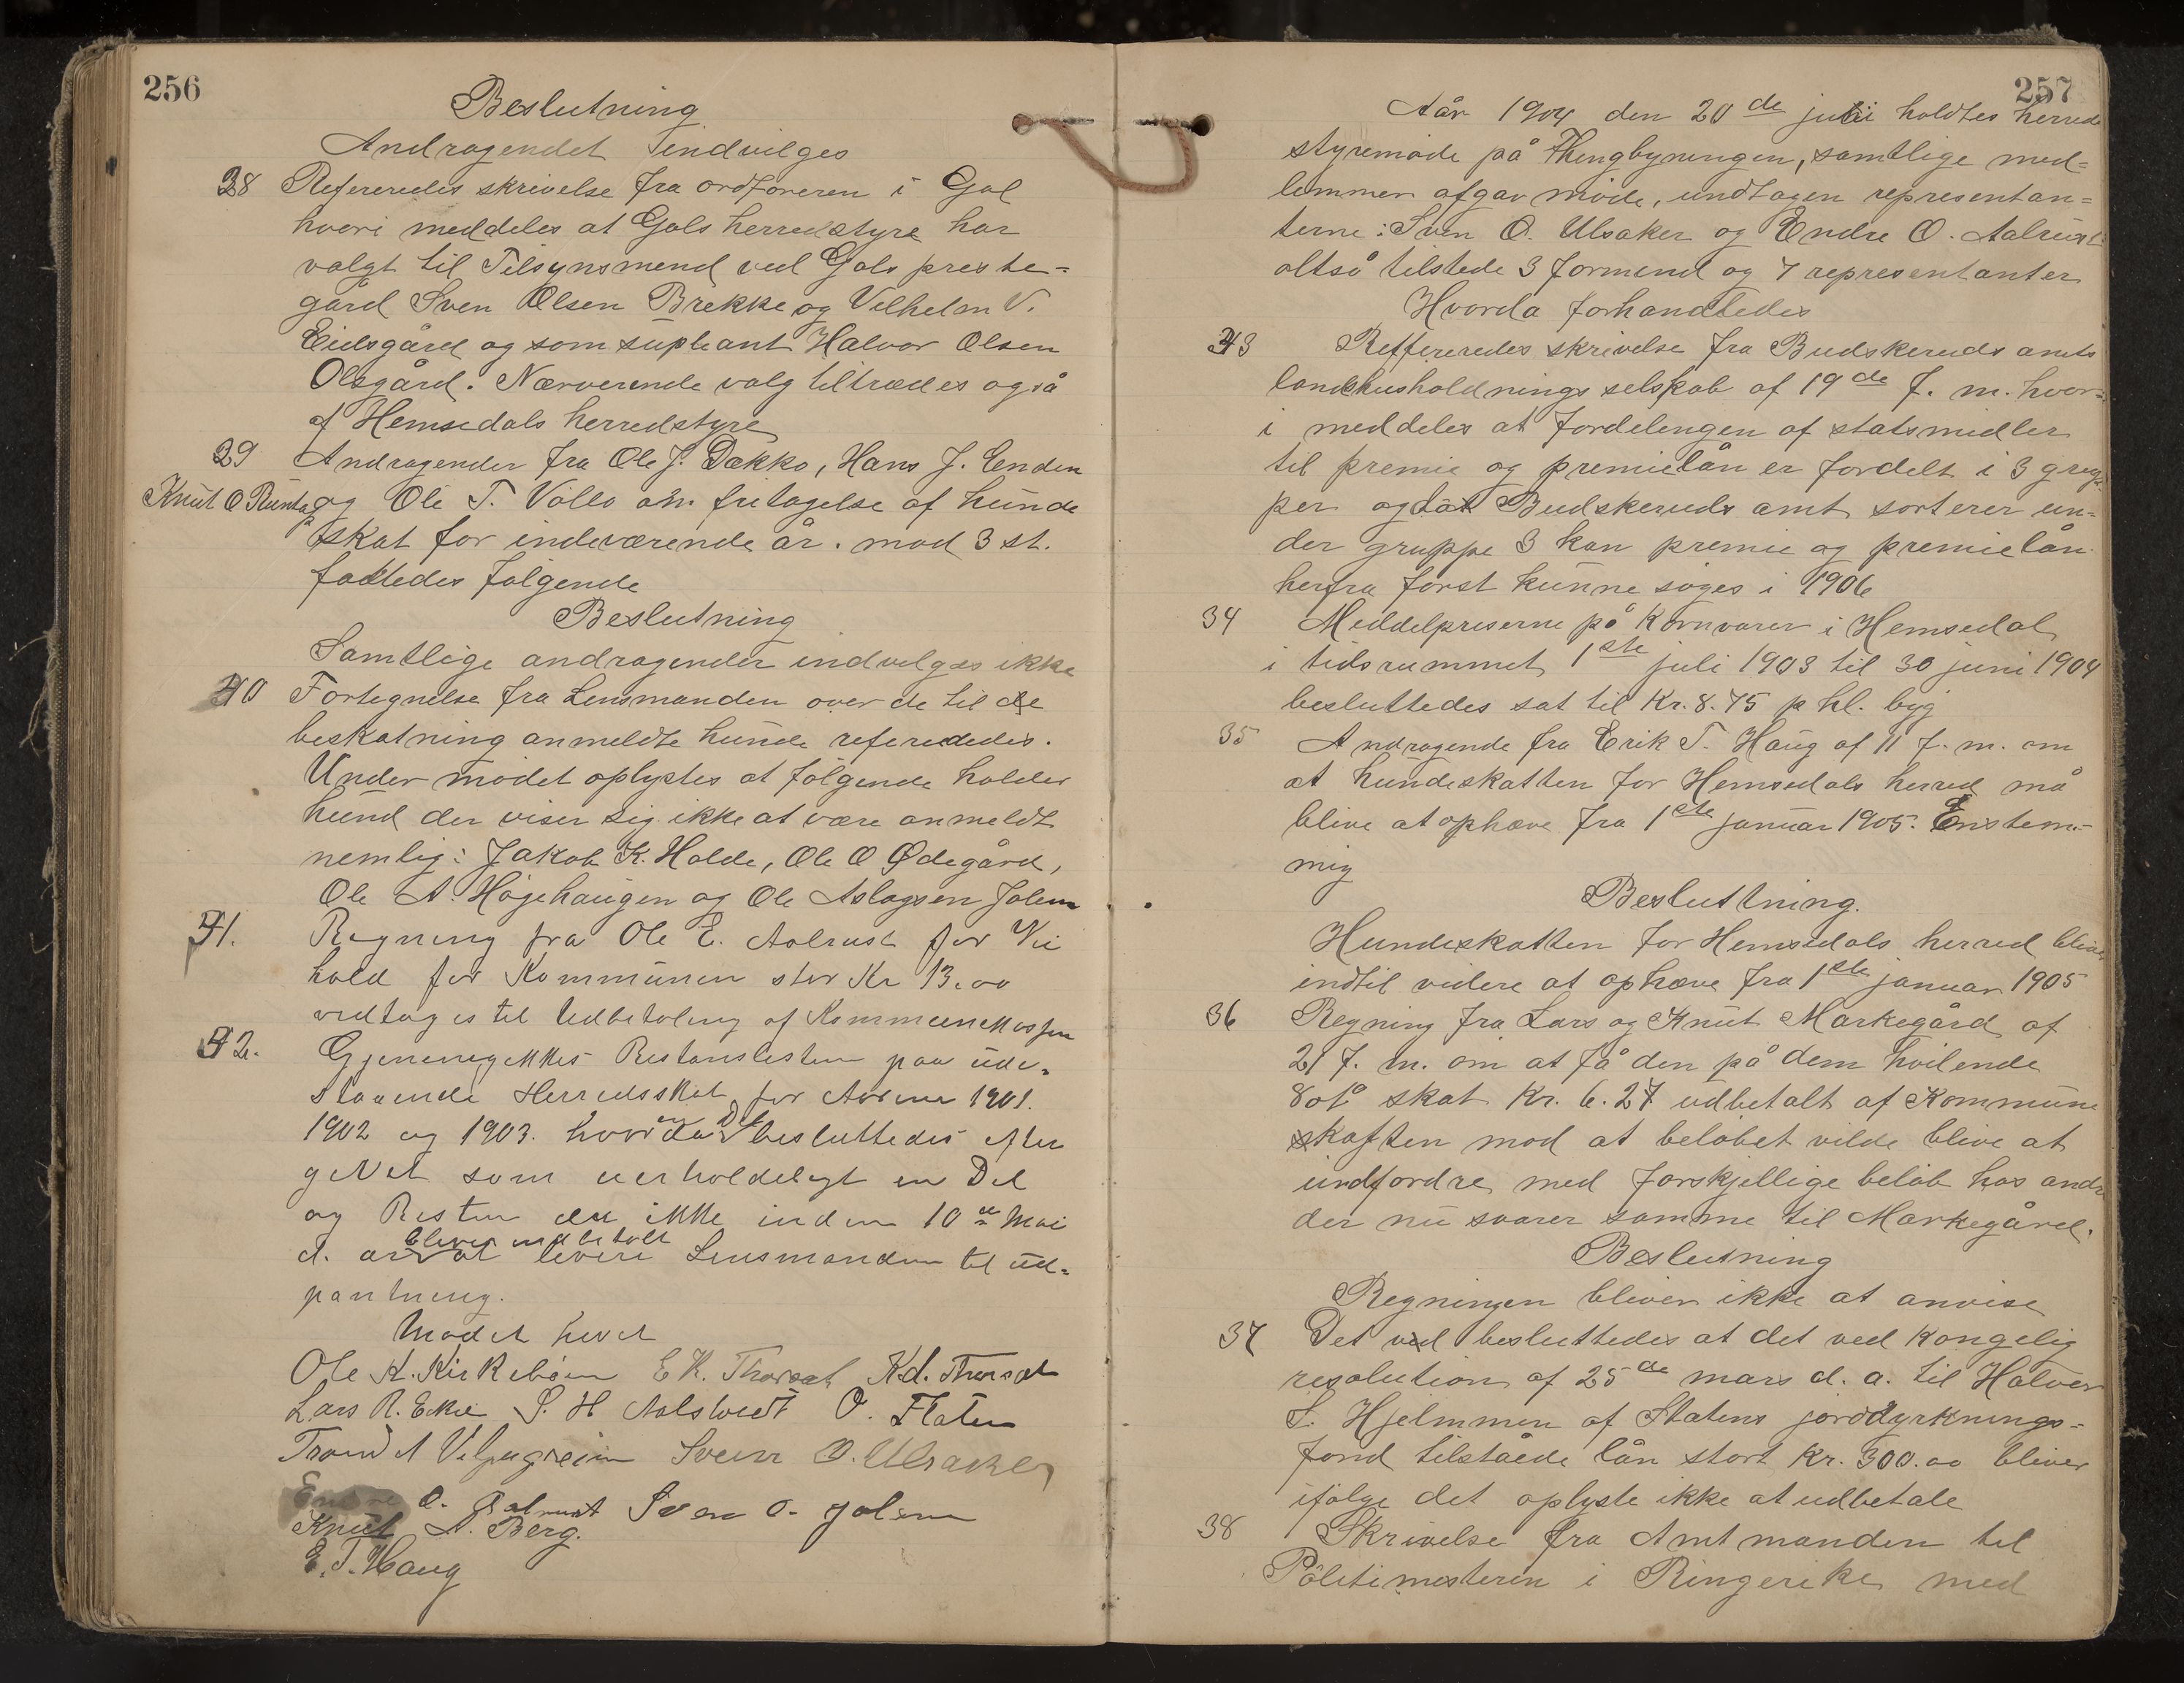 256
Beslutning
Andragendet indvilges
38 Refereredes skrivelse fra ordföreren i Gol
hvori meddeles at Gols herredstyre har
valgt til Tilsynsmend ved Gols preste-
gård Sven Olsen Brekke og Vilhelm V.
Eidsgård og som supleant Halvor Olsen
Olsgård. Nærverende valg tiltrædes også
af Hemsedals herredstyre
39 Andragender fra Ole J. Dekko, Hans J. Enden
Knut O og Ole T. Vøllo om fritagelse af hunde
skat for indeværende år. mod 3 st.
fattedes følgende
Beslutning
Samtlige andragender indvelges ikke
40 Fortegnelse fra Lensmanden over de til
beskatning anmeldte hunde refereredes.
Under mödet oplystes at fölgende holder
hund der viser sig ikke at være anmeldt
nemlig: Jakob K. Holde, Ole O Ødegård,
Ole A. Högehaugen og Ole Aslagsen Jolem
41. Regning fra Ole E. Aalrust for Vei
hold for Kommunen stor Kr 13.00
vedtages til Udbetaling af Kommunekassen
42. Gjennemgikkes Restanslisten paa ude-
staaende Herredsskat for Aarene 1901.
1902 og 1903. hvor en Del besluttedes efter
givet som uerholdeligt en Del
og Resten der ikke inden 10de Mai
d. a. bliver indbetalt at levere Lensmanden til ud-
pantning.
Mødet hevet
Ole K. Kirkebøen E K. Thorset K.d. Thorset
Lars R. Ekre S. H Aalstveit O. Flaten
Trond A Ulsaker Svein O. Ulsaker
Endre O. Aalrust Sven O. Jolem
Knut A. Berg.
E. T. Haug
257
Aår 1904 den 20de juli holdtes herred
styremöde på Thingbyningen, samtlige med-
lemmer afgav möde, undtagen representan-
terne: Sven O. Ulsaker og Endre O. Aalrust
altså tilstede 3 formend og 7 representanter
Hvorda forhandledes
33 Reffereredes skrivelse fra Budskeruds amts
landhusholdnings selskab af 19de f. m. hvor-
i meddeles at fordelengen af statsmidler
til premie og premielån er fordelt i 3 grup-
per og da Budskeruds amt sorterer un-
der gruppe 3 kan premie og premielån
herfra först kunne söges i 1906
34 Meddelpriserne på Kornvarer i Hemsedal
i tidsrummet 1ste juli 1903 til 30 juni 1904
besluttedes sat til Kr. 8.75 p hl. byg
35 Andragende fra Erik T. Haug af 11 f. m. om
at hundeskatten for Hemsedals herred må
blive at ophæve fra 1ste januar 1905. Enstem-
mig
Besluttning.
Hundeskatten for Hemsedals herred bliver
indtil videre at ophæve fra 1ste januar 1905
36 Regning fra Lars og Knut Markegård af
21 f. m. om at få den på dem hvilende
skat Kr. 6.27 udbetalt af Kommune
kassen mod at belöbet vilde blive at
undfordre med forskjellige belöb hos andre
der nu svarer samme til Markegård.
Beslutning
Regningen bliver ikke at anvise
37 Det ved besluttedes at det ved Kongelig
resolution af 25de mars d. a. til Halvor
S. Hjelmmen af Statens jorddyrknings-
fond tilståede lån stort Kr. 300.00 bliver
ifölge det oplyste ikke at udbetale
38 Skrivelse fra Amtmanden til
Politimesteren i Ringerike med